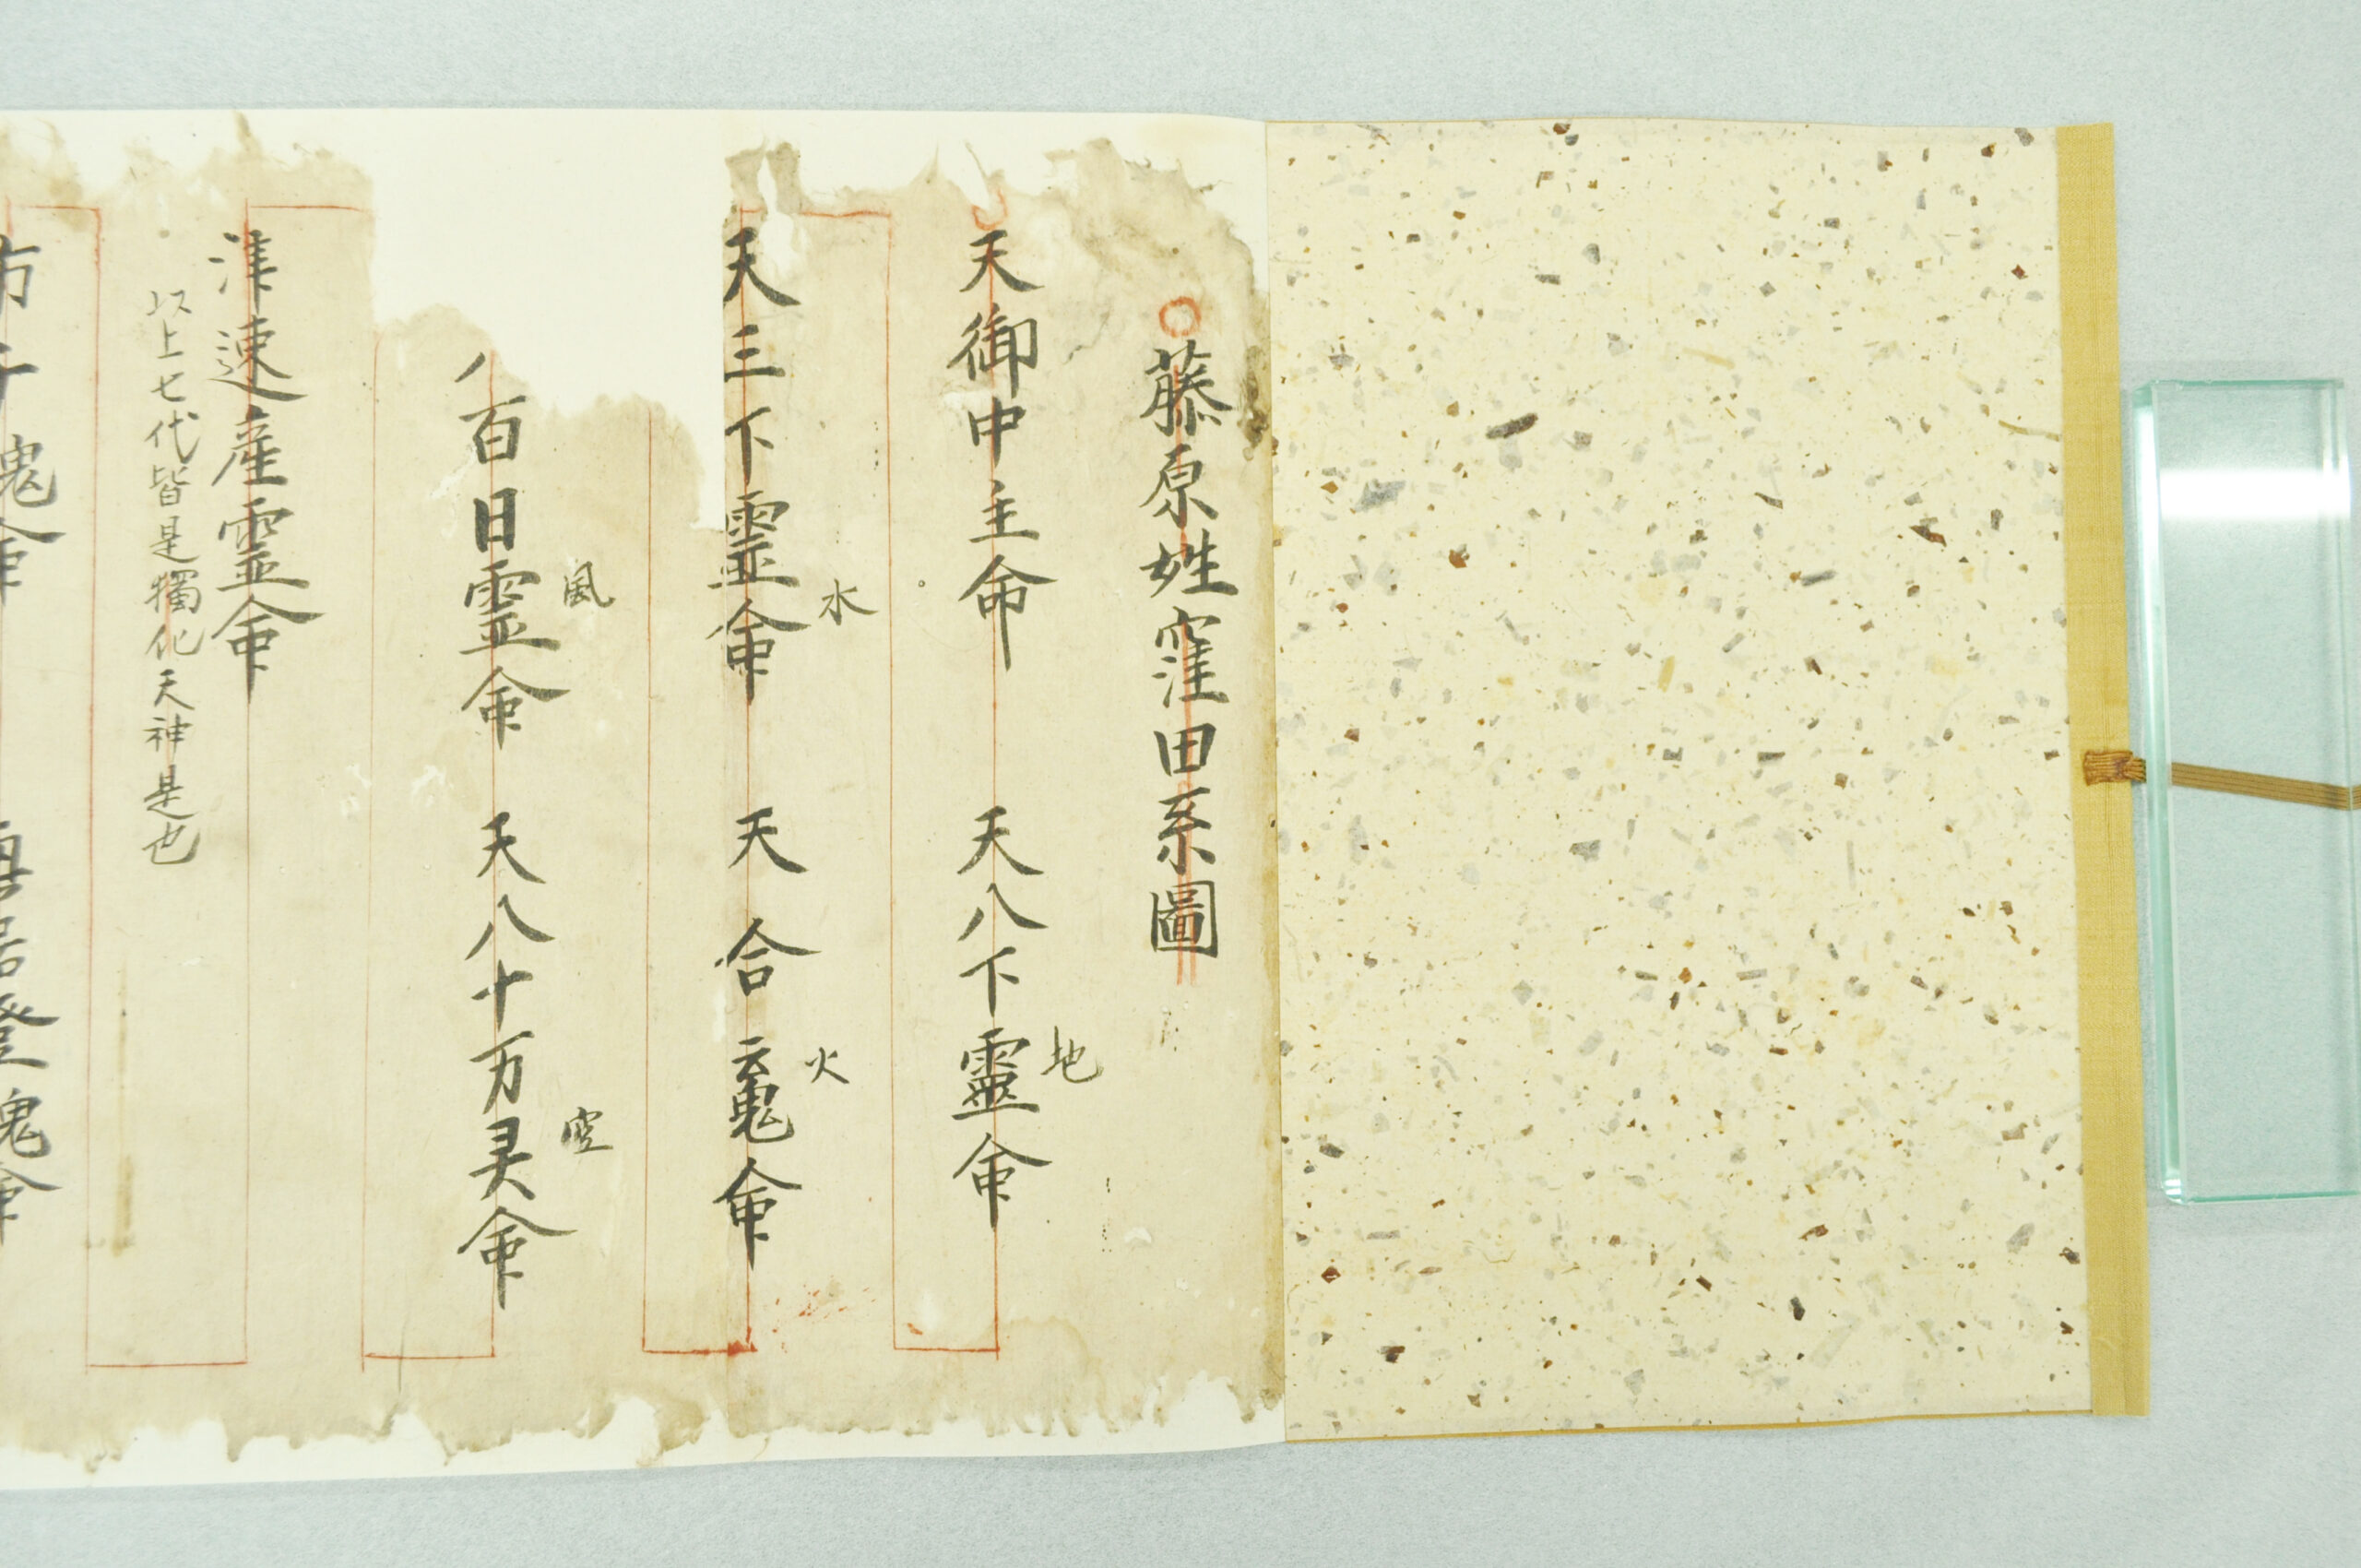 藤原姓窪田系圖
天御中主命
天八下靈命
地
天三下靈命
水
天合䰟命
火
百日霊命
風
天八十万灵命
空
津速産霊命
以上七代皆是獨化天神是也
魂命
居登魂命